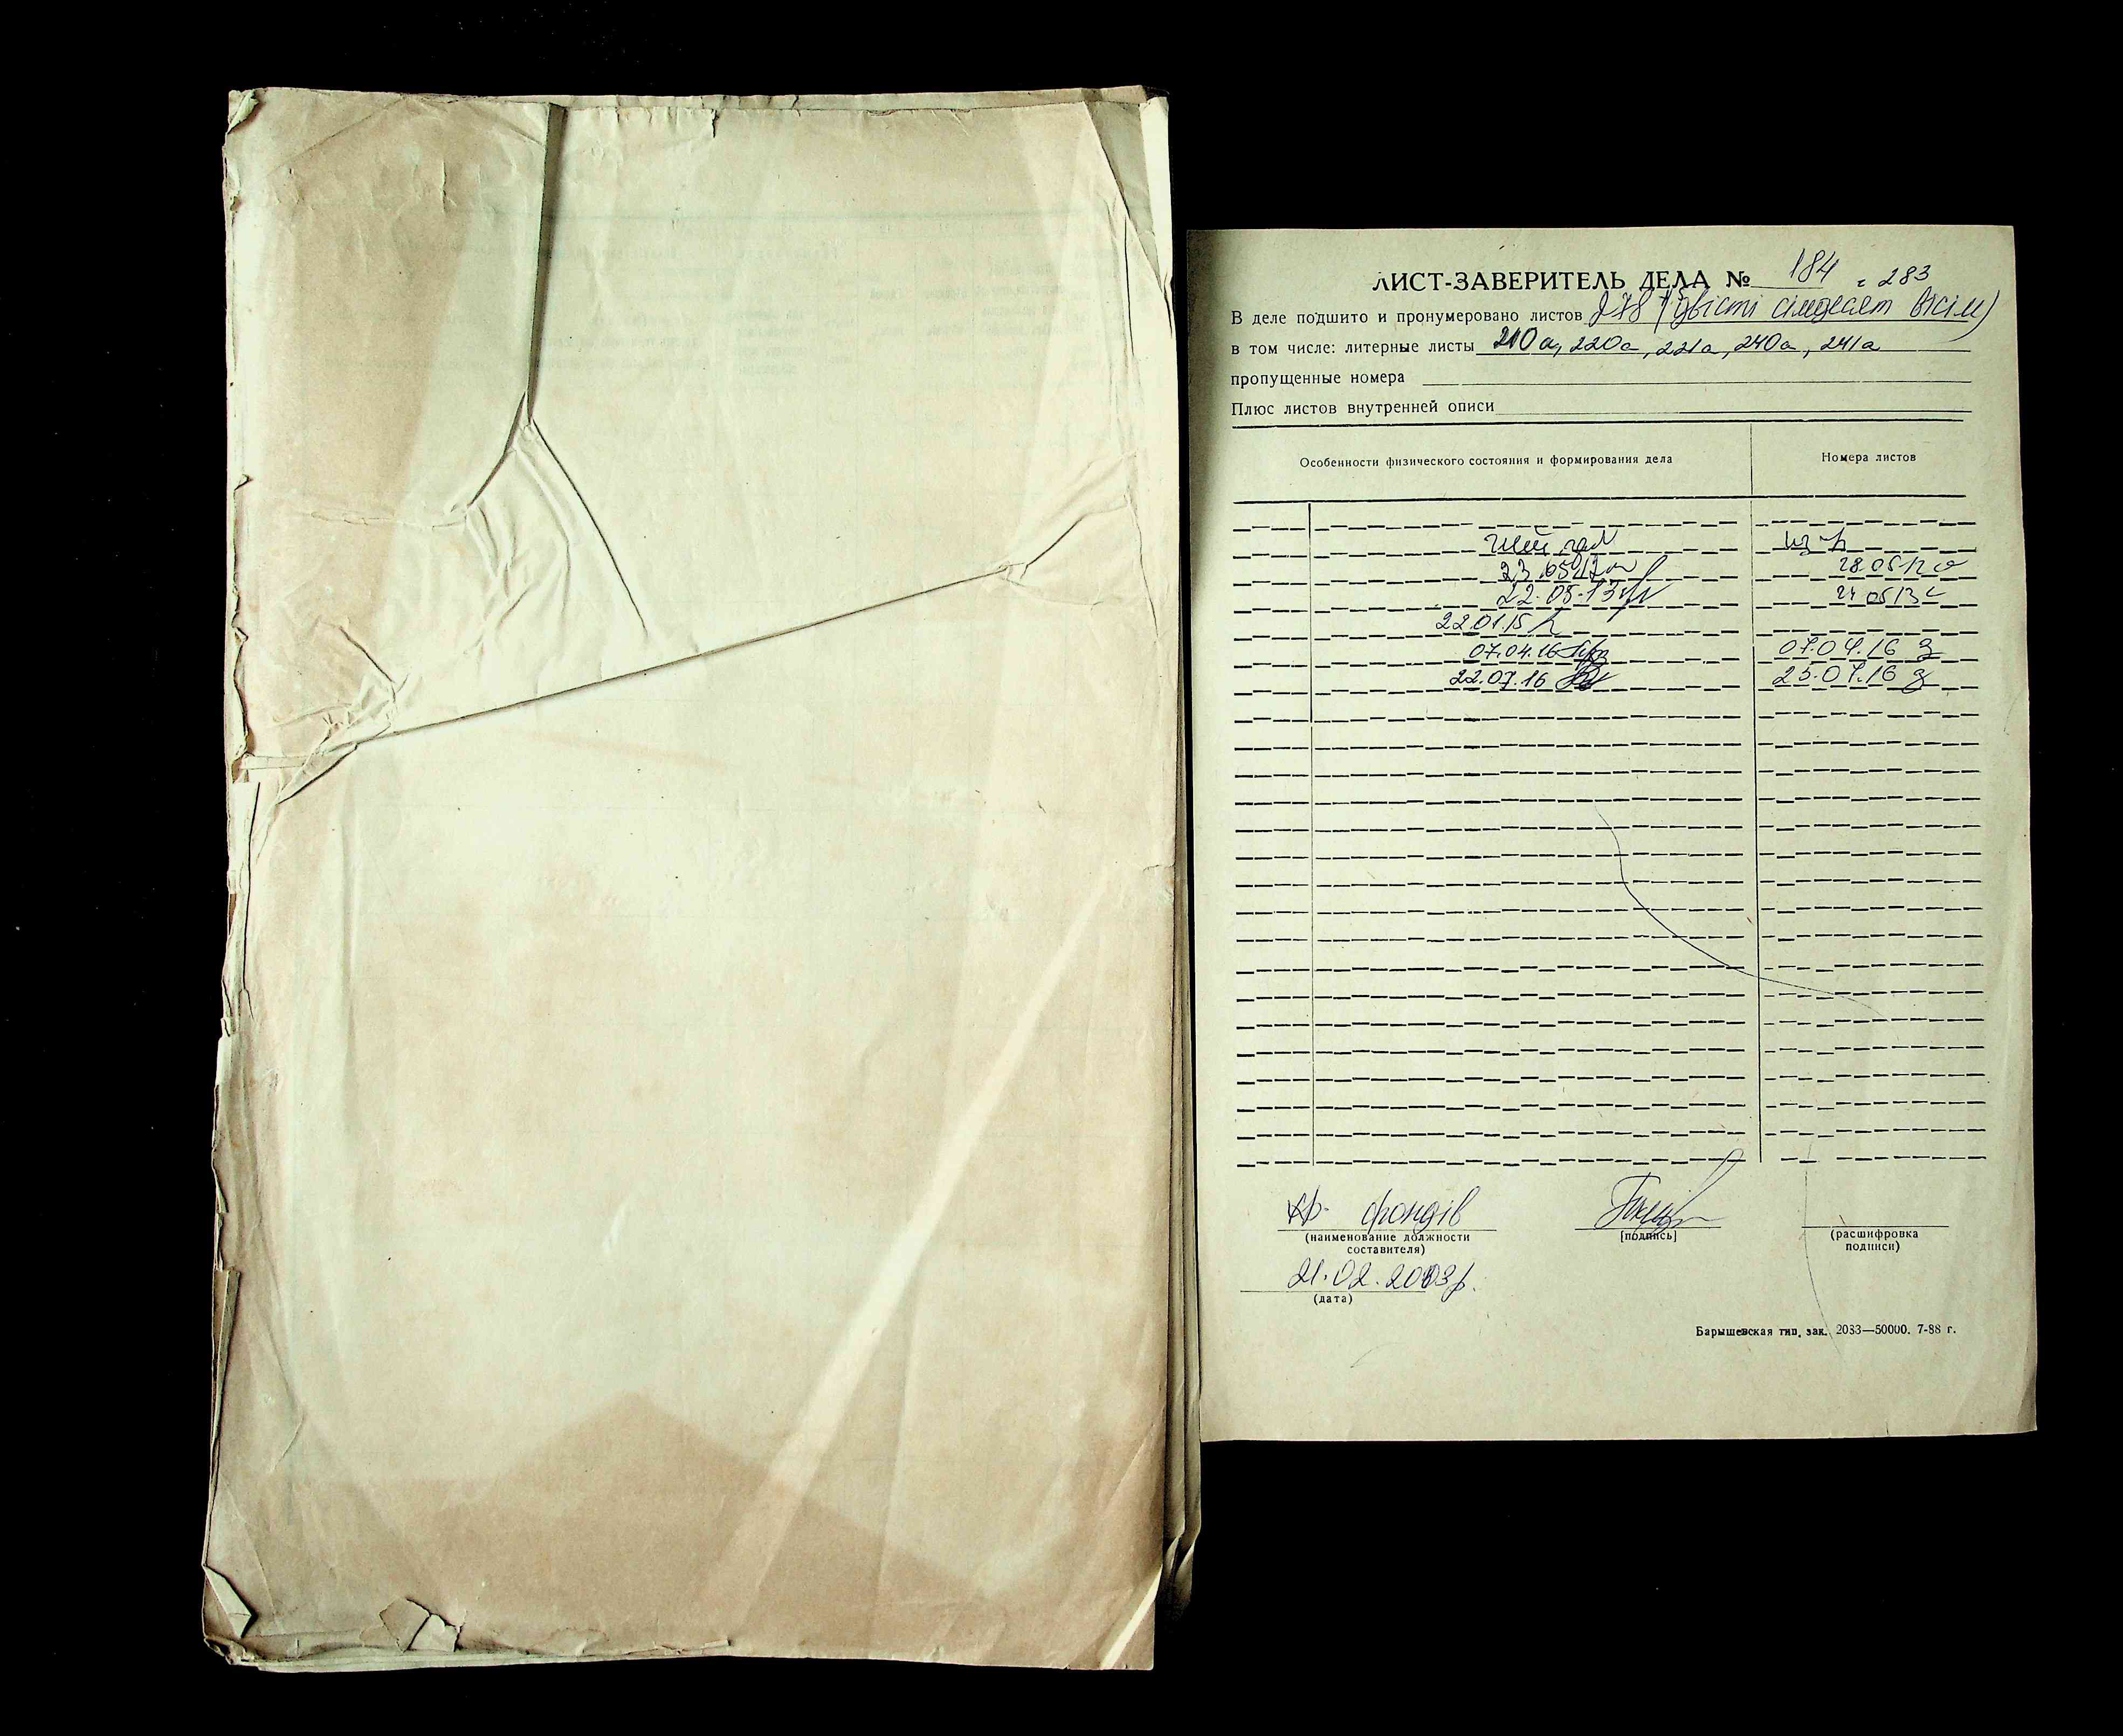 ЛИСТ-ЗАВЕРИТЕЛЬ ДЕЛА № 184 283
В деле подшито и пронумеровано листов 278 (двісті сімдесят вісім)
в том числе: литерные листы 210а, 220а, 221а, 240а, 241а
пропущенные номера
Плюс листов внутренней описи
Особенности физического состояния и формирования дела
Номера листов
23.05.12 28.05.12
22.05.13 24.05.13
22.01.15
07.04.16 07.04.16
22.07.16 25.07.16
хр. фондів
(наименование должности составителя)
[подпись]
(расшифровка подписи)
21.02.2003р.
(дата)
Барышевская тип. зак. 2033—50000. 7-88 г.